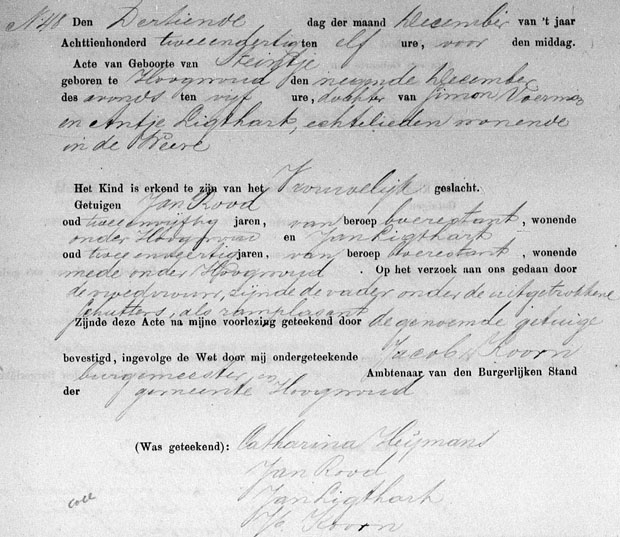 N 48 Den Dertiende dag der maand December van 't jaar
Achttienhonderd twee endertig ten elf ure, voor den middag.
Acte van Geboorte van Trijntje
geboren te Hoogwoud den negende December
des avonds ten vijf ure, dochter van Simon Voerman
en Antje Ligthart, echtelieden wonende
in de Weere
Het Kind is erkend te zijn van het Vrouwelijk geslacht.
Getuigen Jan Rood
oud twee envijftig jaren, van beroep boerestant, wonende
onder Hoogwoud en Jan Ligthart
oud twee enveertig jaren, van beroep boerestant, wonende
mede onder Hoogwoud. Op het verzoek aan ons gedaan door
de vroedvrouw, zijnde de vader onder de uitgetrokkene
schutters, als ramplasant
Zijnde deze Acte na mijne voorlezing geteekend door de genoemde getuige
bevestigd, ingevolge de Wet door mij ondergeteekende Jacob Koorn
burgemeester en Ambtenaar van den Burgerlijken Stand
der gemeente Hoogwoud
(Was geteekend): Catharina Heijmans
Jan Rood
Jan Ligthart
Koorn